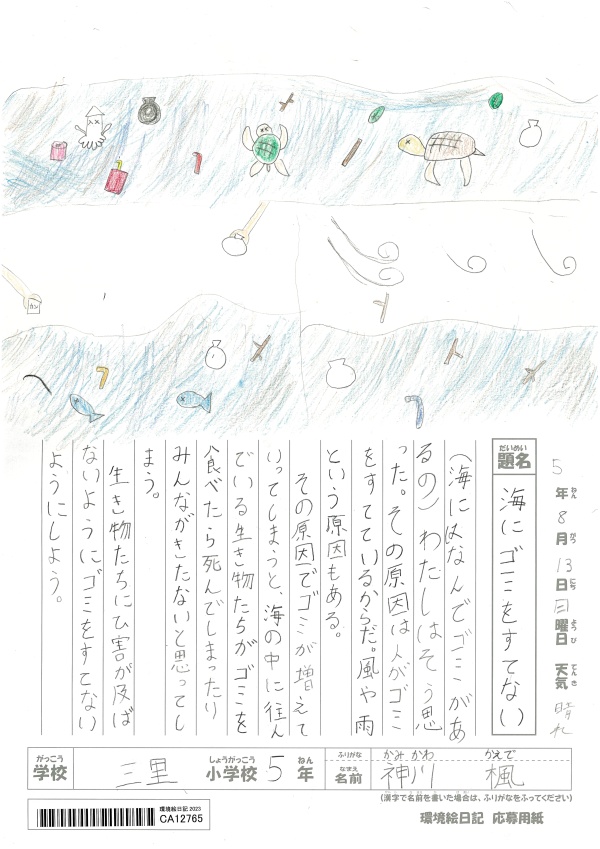 カン
5年8月13日日曜日 天気 晴れ
ねん がつ にち ようび てんき
だいめい
題名
海にゴミをすてない
(海にはなんでゴミがあ
るの)わたしはそう思
った。その原因は人がゴミ
をすてているからだ。風や雨
という原因もある。
その原因でゴミが増えて
いってしまうと、海の中に往ん
でいる生き物たちがゴミを
食べたら死んでしまったり
みんながきたないと思ってし
まう。
生き物たちにひ害が及ば
ないようにゴミをすてない
ようにしよう。
がっこう しょうがっこう ねん ふりがな かみかわ かえで
学校 三里 小学校 5年 なまえ 名前 神川 楓
(漢字で名前を書いた場合は、ふりがなをふってください)
環境絵日記 2023
CA12765
環境絵日記 応募用紙